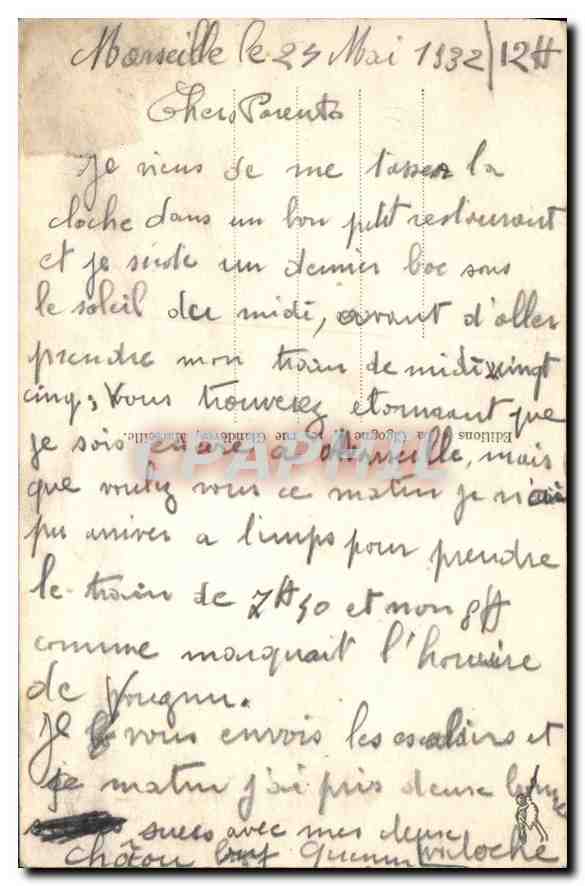 Marseille le 25 Mai 1932 / 12H
Chers Parents
Je viens de me tasser la
cloche dans un bon petit restaurant
et je sirote un dernier boc sous
le soleil du midi, avant d'aller
prendre mon train de midi vingt
cinq, Vous trouverez étonnant que
je sois encore à Marseille, mais
que voulez vous ce matin je n'ai
pu arriver a temps pour prendre
le train de 7H50 et non 8H
comme marquait l'horaire
de
Je vous envois les escaliers et
je matin j'ai pris deux
avec mes deux
Editions La Cigogne rue Glandevès, Marseille.
CPAPHIL